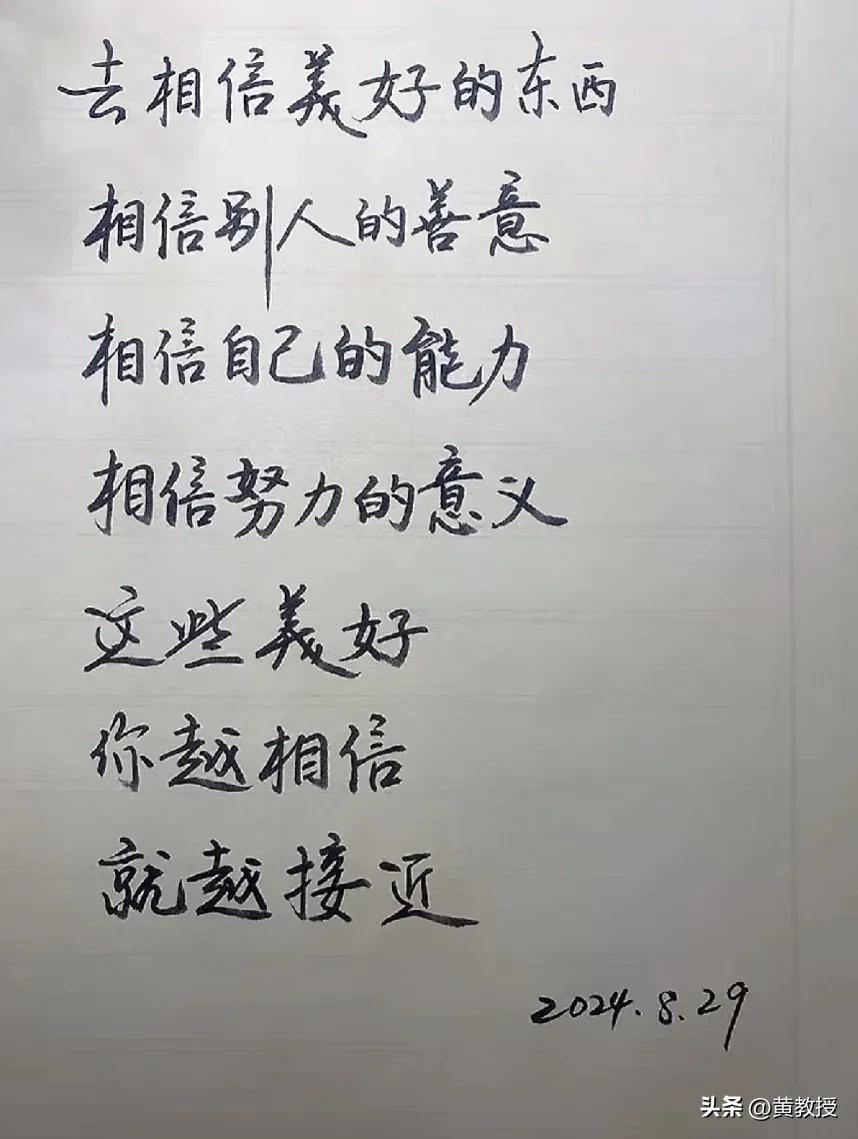 去相信義好的东西
相信别人的善意
相信自己的能力
相信努力的意义
这些義好
你越相信
就越接近
2024.8.29
头条 @黄教授